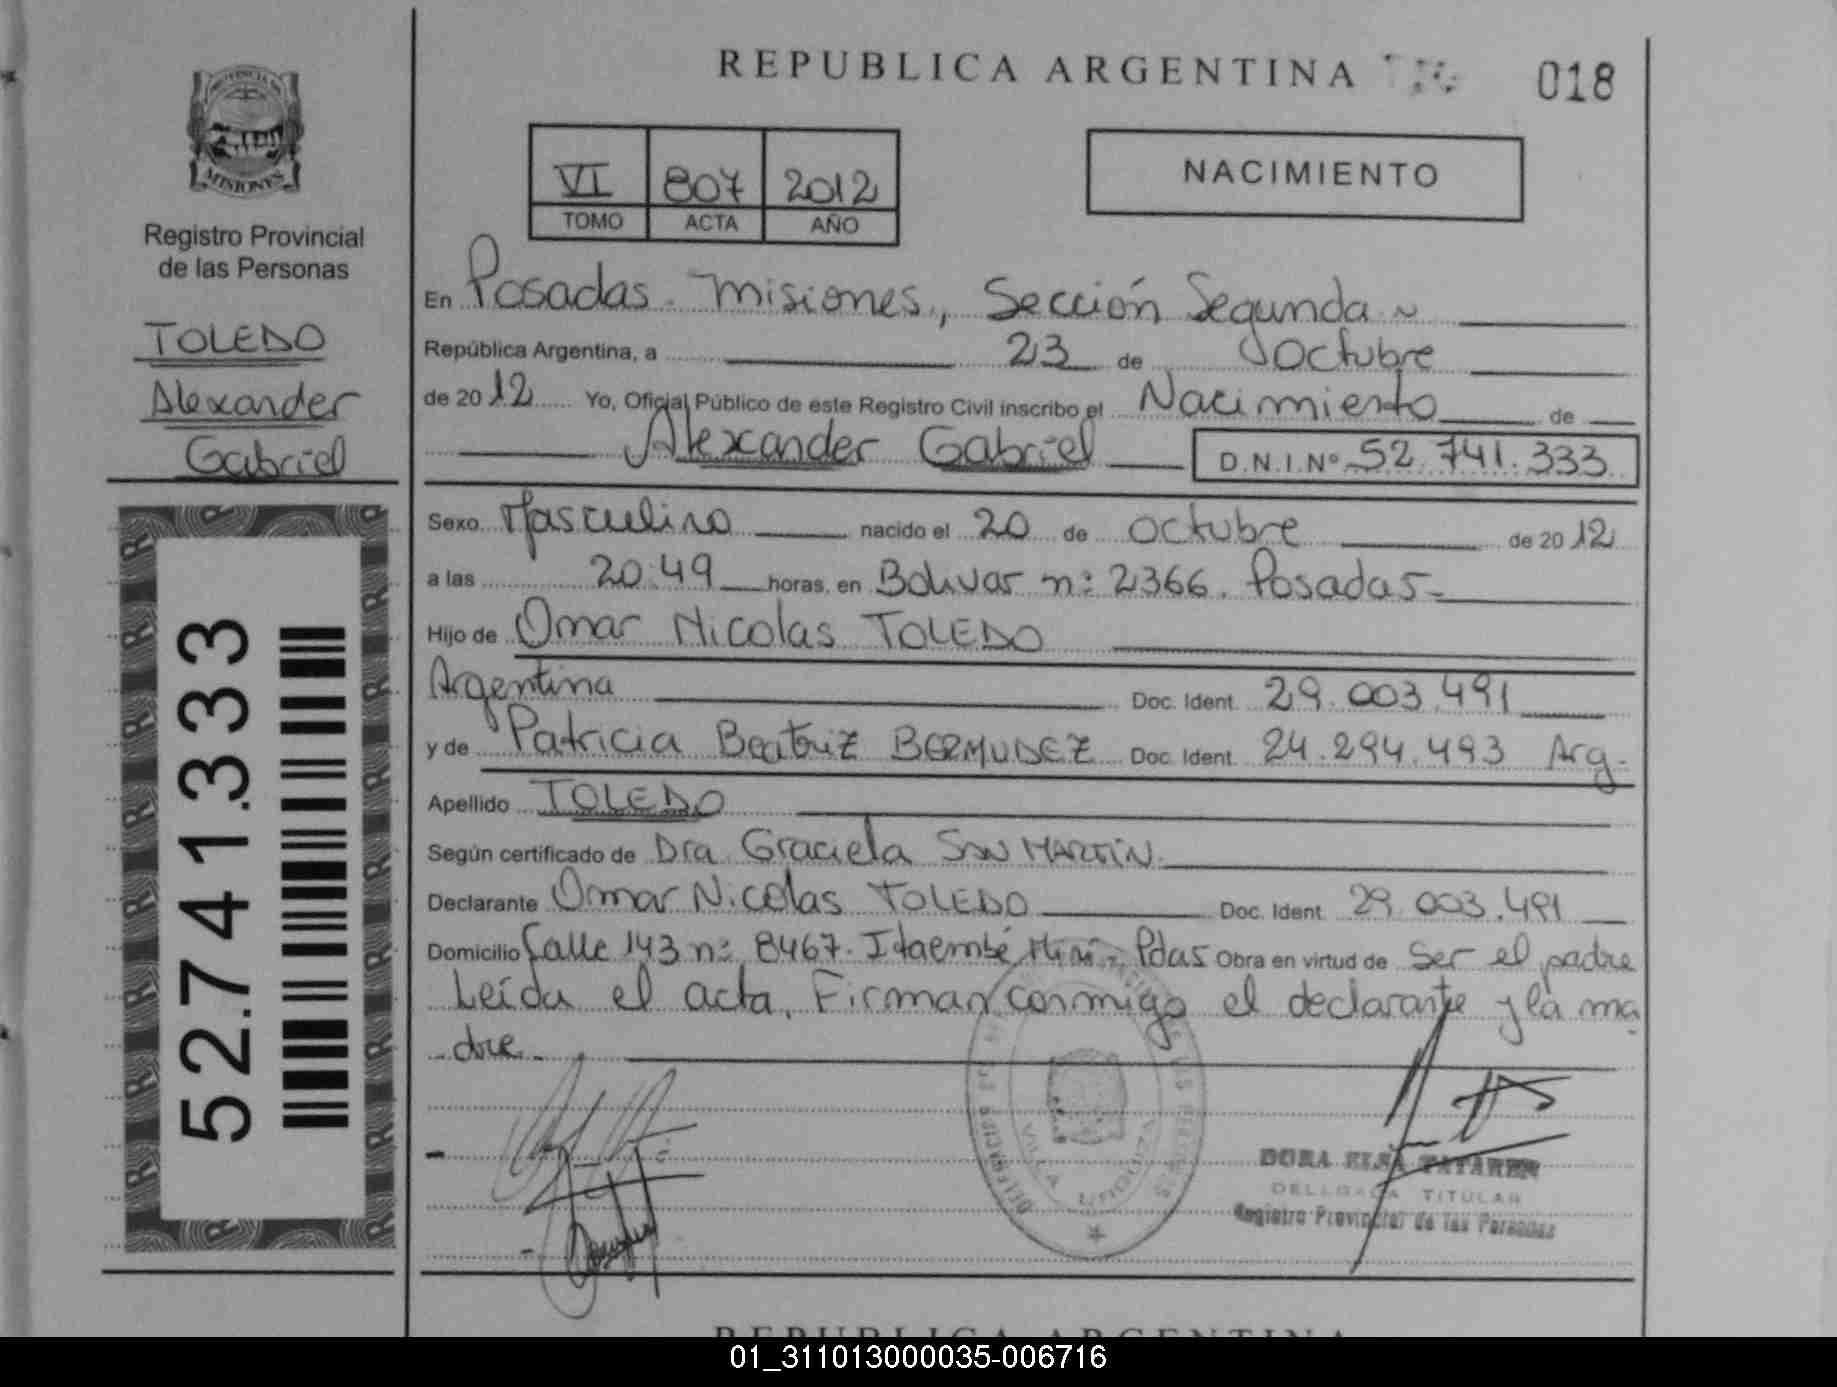 REPUBLICA ARGENTINA
018
PROVINCIA DE
MISIONES
Registro Provincial
de las Personas
TOLEDO
Alexander
Gabriel
52.741.333
VI 807 2012
TOMO ACTA AÑO
NACIMIENTO
En Posadas. Misiones, Sección Segunda
República Argentina, a 23 de Octubre
de 2012 Yo, Oficial Público de este Registro Civil inscribo el Nacimiento de
Alexander Gabriel D.N.I.Nº 52.741.333
Sexo Masculino nacido el 20 de octubre de 2012
a las 20:49 horas, en Bolivar nº 2366. Posadas-
Hijo de Omar Nicolas TOLEDO
Argentina Doc. Ident. 29.003.491
y de Patricia Beatriz BERMUDEZ Doc. Ident. 24.294.493 Arg.
Apellido TOLEDO
Según certificado de Dra. Graciela SAN MARTIN.
Declarante Omar Nicolas TOLEDO Doc. Ident. 29.003.491
Domicilio Calle 143 nº 8467. Itaembé Mini- Pdas Obra en virtud de ser el padre
Leída el acta, Firman conmigo el declarante y la ma
dre.
VILLA URQUIZA
DORA ELSA TATAREN
DELEGADA TITULAR
Registro Provincial de las Personas
REPUBLICA ARGENTINA
01_311013000035-006716